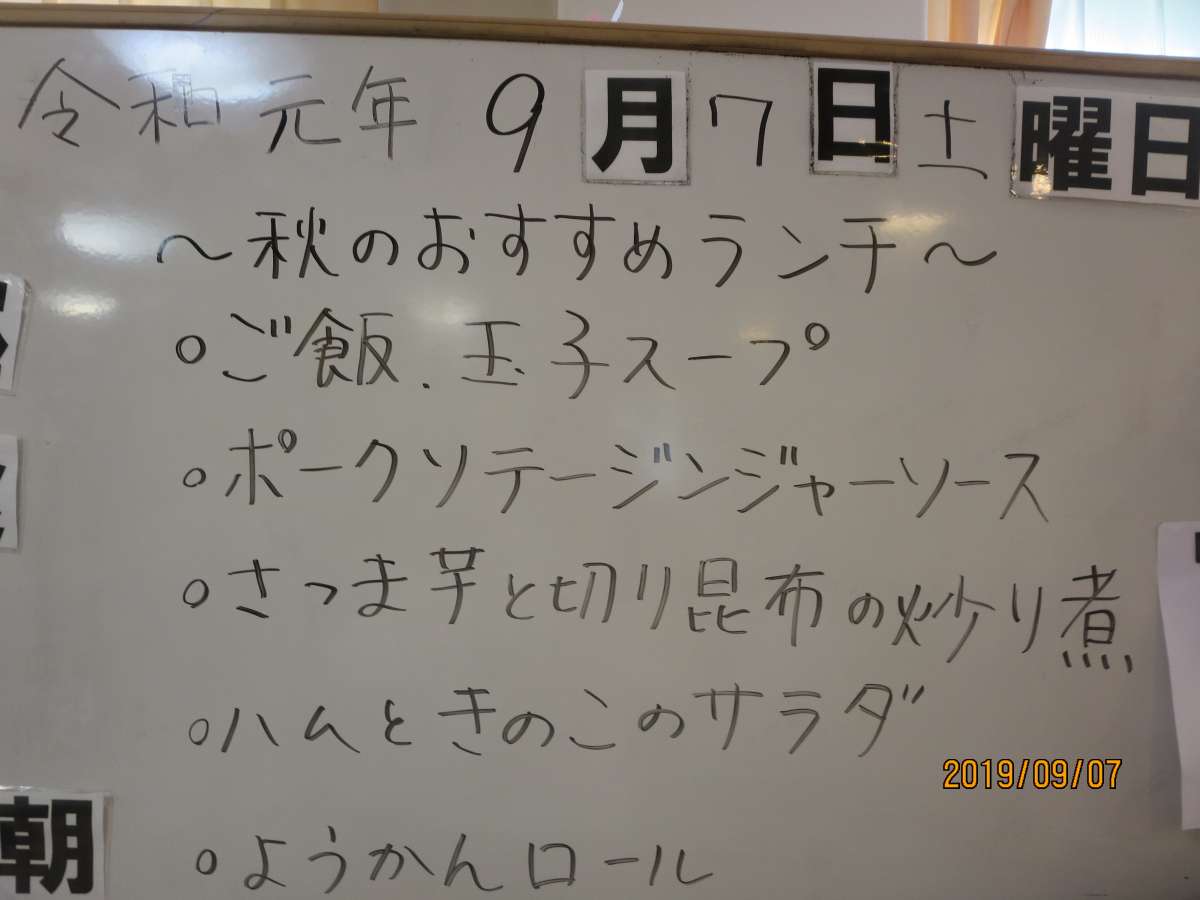 令和元年 9月7日 土曜日
～秋のおすすめランチ～
○ご飯.玉子スープ
○ポークソテージンジャーソース
○さつま芋と切り昆布の炒り煮
○ハムときのこのサラダ
2019/09/07
朝
○ようかんロール